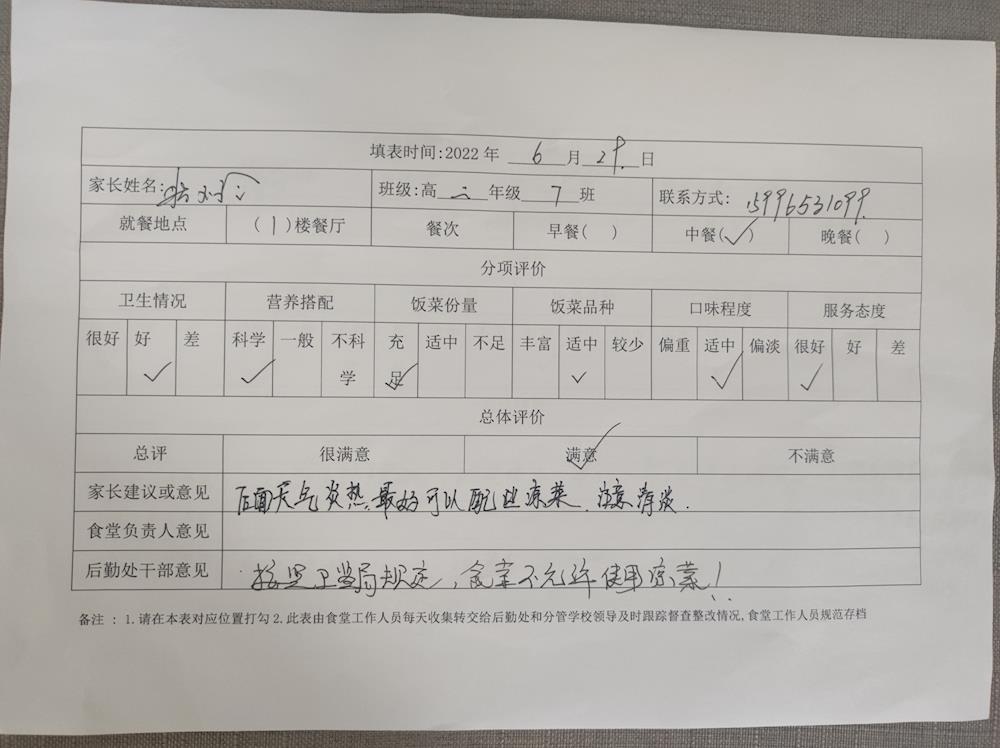 填表时间:2022年 6 月 29 日
家长姓名: 班级:高 二 年级 7 班 联系方式: 15996531099
就餐地点 (1)楼餐厅 餐次 早餐( ) 中餐(✓) 晚餐( )
分项评价
卫生情况 营养搭配 饭菜份量 饭菜品种 口味程度 服务态度
很好 好 差 科学 一般 不科学 充足 适中 不足 丰富 适中 较少 偏重 适中 偏淡 很好 好 差
✓ ✓ ✓ ✓ ✓ ✓
总体评价
总评 很满意 满意 ✓ 不满意
家长建议或意见 后面天气炎热,最好可以配些凉菜.注意清淡.
食堂负责人意见
后勤处干部意见 按照卫监局规定,食堂不允许使用凉菜!
备注 : 1.请在本表对应位置打勾2.此表由食堂工作人员每天收集转交给后勤处和分管学校领导及时跟踪督查整改情况,食堂工作人员规范存档